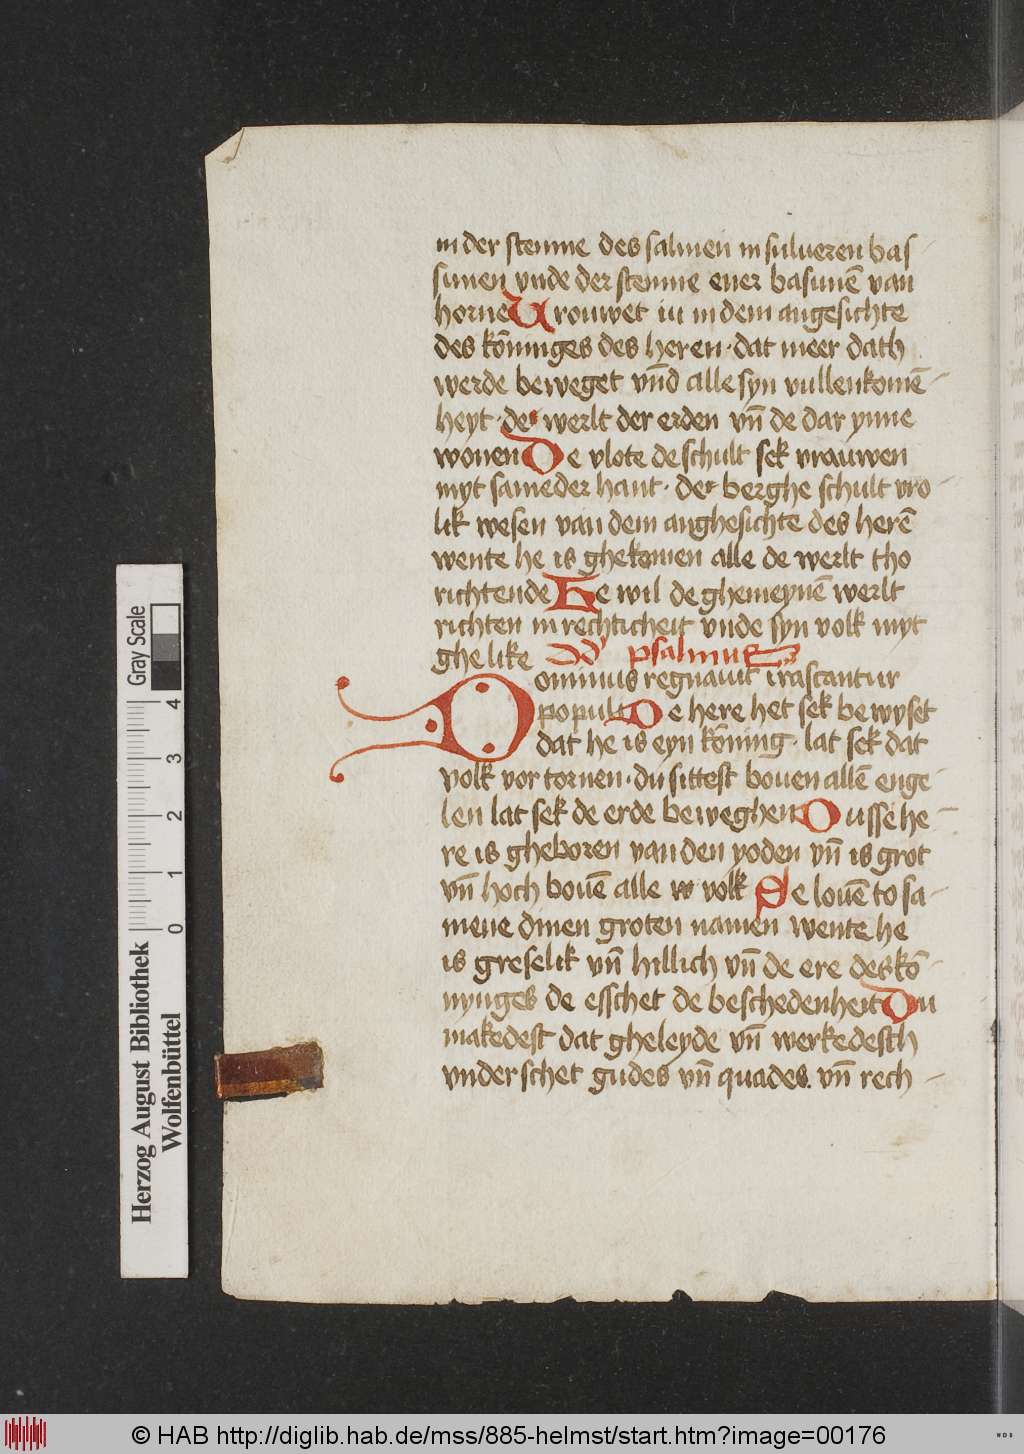 in der stemme des salmen in sulueren bas-
sunen vnde der stemme ener basunē van
horne Vrouwet iu in dem angesichte
des kōninges des heren · dat meer dath
werde beweget vn̄d alle syn vullenkomē-
heyt · de werlt der erden vn̄ de dar ynne
wonen De vlote de schult sek vrauwen
myt sameder hant · der berghe schult vro-
lik wesen van dem anghesichte des herē
wente he is ghekomen alle de werlt tho
richtende He wil de ghemeynē werlt
richten in rechticheit vnde syn volk myt
ghelike psalmus
Dominus regnauit irascantur
populi De here het sek bewyset
dat he is eyn kōning · lat sek dat
volk vor tornen · du sittest bouen allē enge
len lat sek de erde beweghen Dusse he-
re is gheboren van den yoden vn̄ is grot
vn̄ hoch bouē alle volk Se louē to sa-
mene dinen groten namen wente he
is greselik vn̄ hillich vn̄ de ere des kō-
nynges de esschet de beschedenheit Du
makedest dat gheleyde vn̄ werkedesth
vnderschet gudes vn̄ quades. vn̄ rech-
Herzog August Bibliothek
Wolfenbüttel
Gray Scale
0 1 2 3 4
© HAB http://diglib.hab.de/mss/885-helmst/start.htm?image=00176